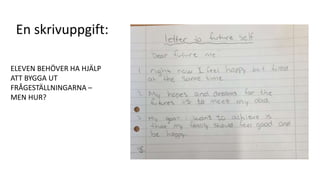 En skrivuppgift:
ELEVEN BEHÖVER HA HJÄLP
ATT BYGGA UT
FRÅGESTÄLLNINGARNA –
MEN HUR?
letter to future self
Dear future me
1. right now I feel happy but tired
at the same time
2. My hopes and dreams for the
futures is to meet my dad.
3. My goal i want to achieve is
that my family should feel good and
be happy.